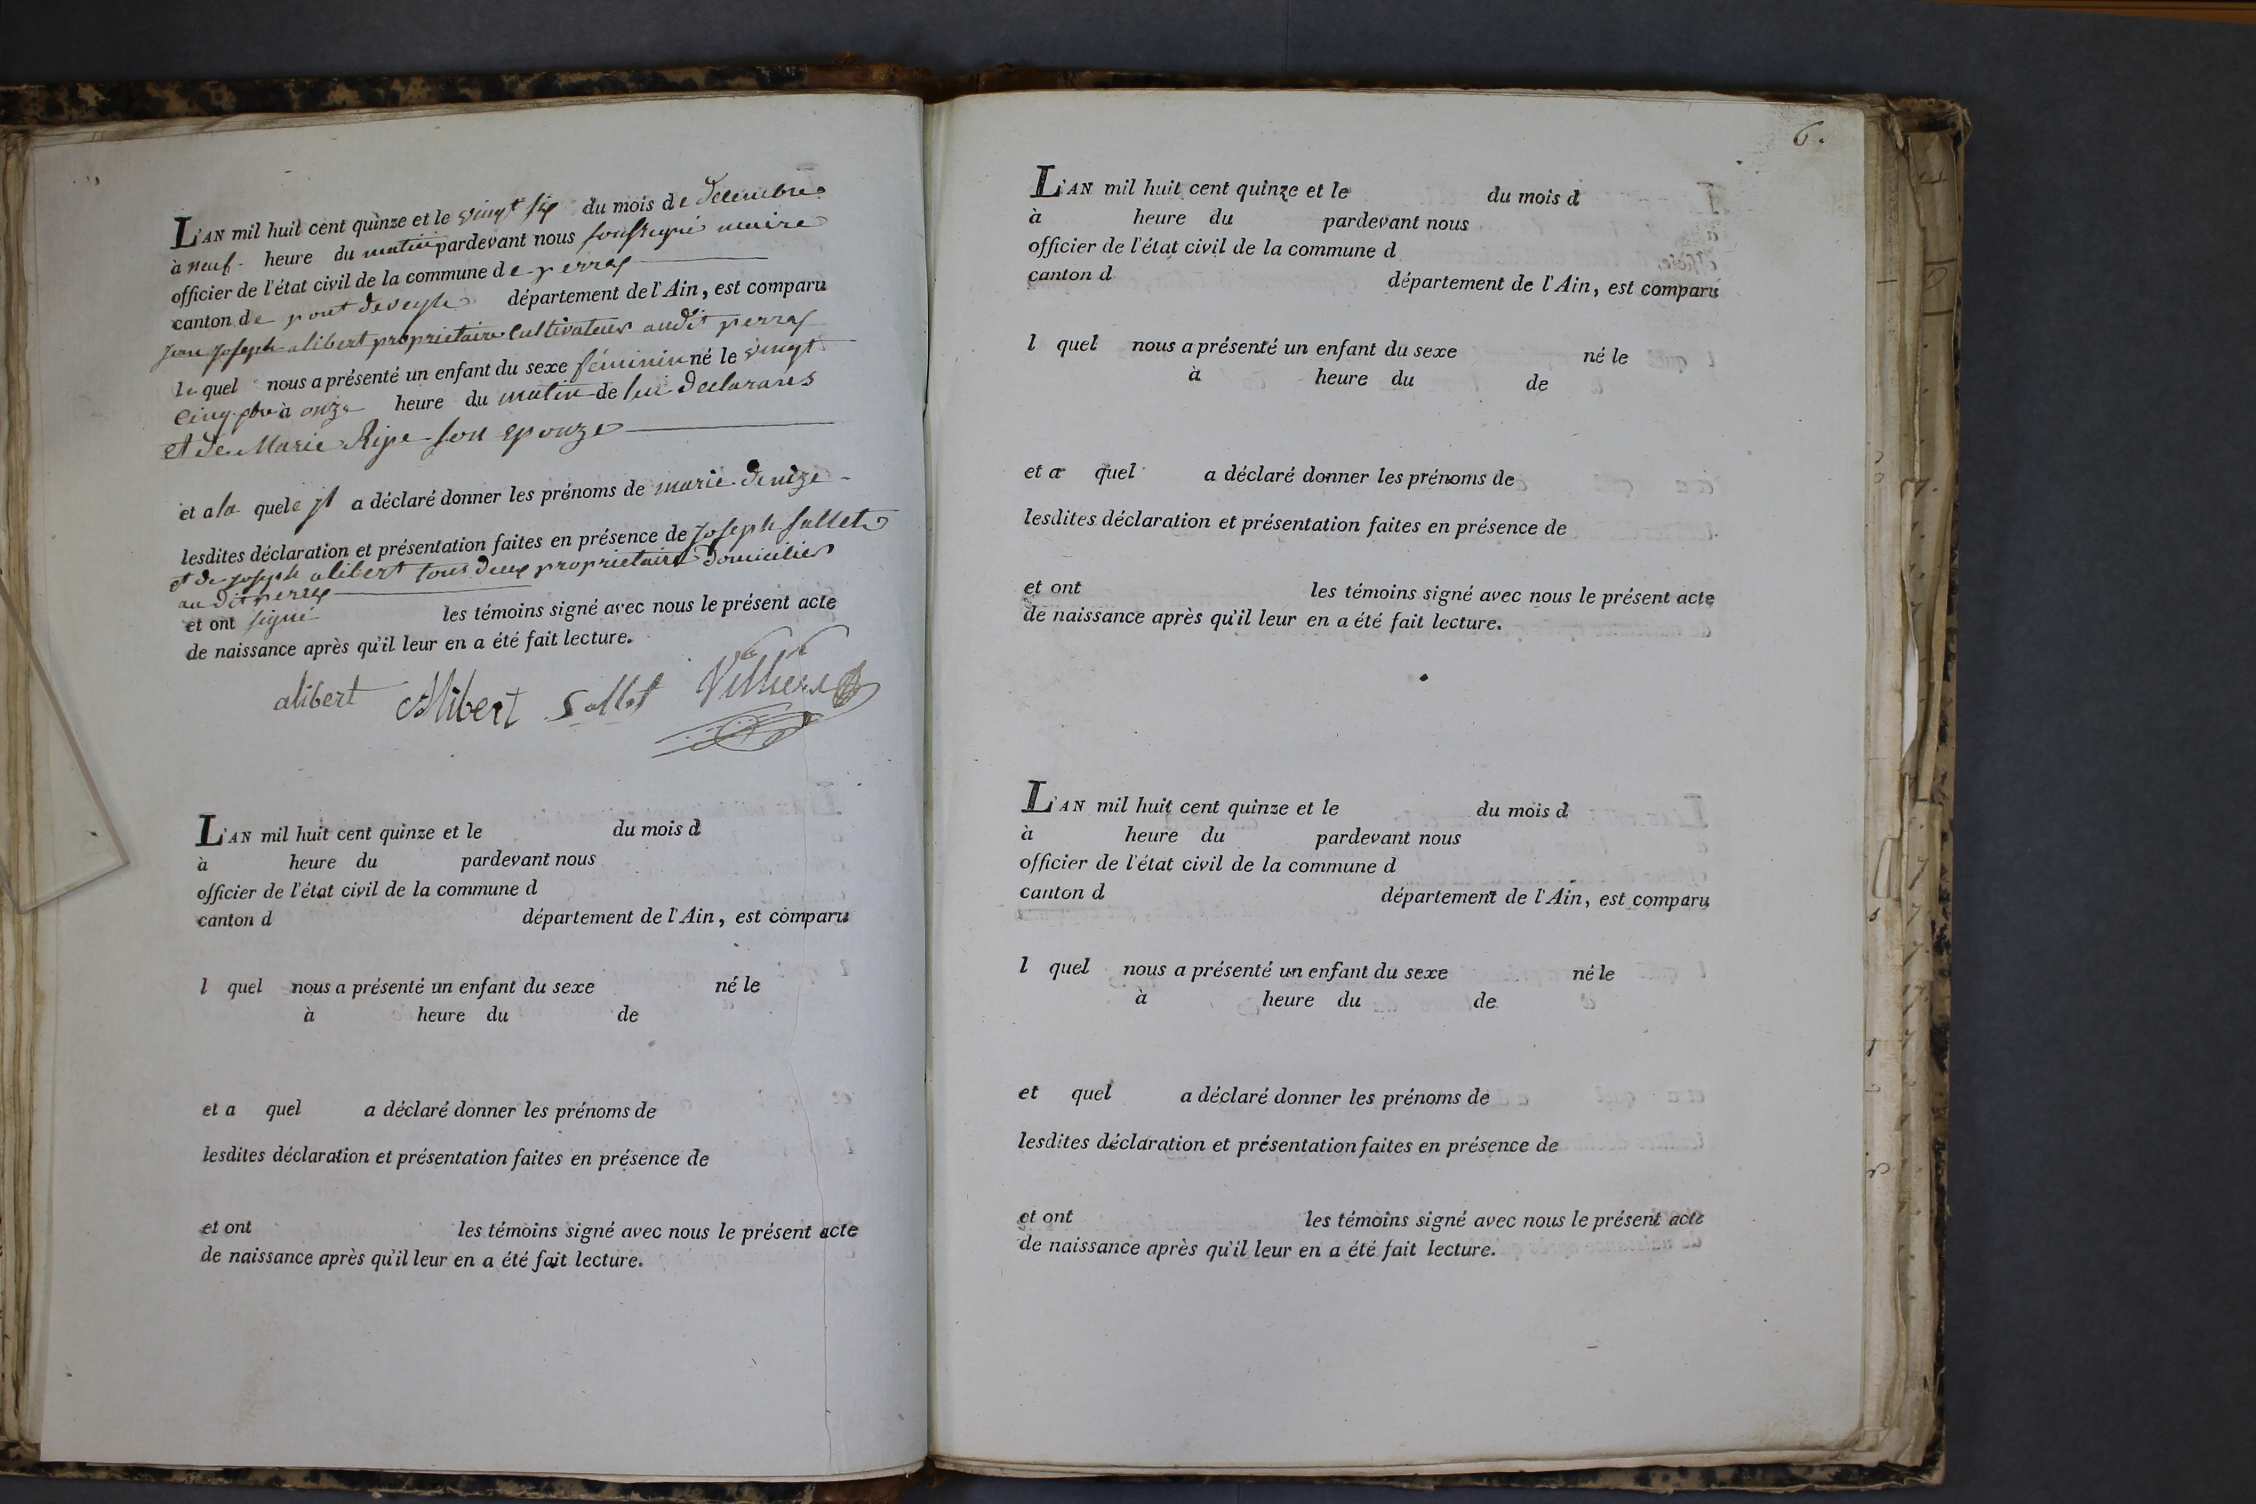 L'AN mil huit cent quinze et le vingt six du mois de decembre
à neuf heure du matin pardevant nous soussigné maire
officier de l'état civil de la commune de perrex
canton de pont deveyle département de l'Ain, est comparu
jean joseph alibert proprietaire Cultivateur audit perrex
le quel nous a présenté un enfant du sexe féminin né le vingt
Cinq à onze heure du matin de lui declarans
et de Marie Ripe son epouze
et a la quele il a déclaré donner les prénoms de marie denize
lesdites déclaration et présentation faites en présence de joseph sallet
et de joseph alibert tous deux proprietaire domicilies
au dit perrex
et ont signé les témoins signé avec nous le présent acte
de naissance après qu'il leur en a été fait lecture.
alibert Alibert Sallet Villiers
L'AN mil huit cent quinze et le du mois d
à heure du pardevant nous
officier de l'état civil de la commune d
canton d département de l'Ain, est comparu
l quel nous a présenté un enfant du sexe né le
à heure du de
et a quel a déclaré donner les prénoms de
lesdites déclaration et présentation faites en présence de
et ont les témoins signé avec nous le présent acte
de naissance après qu'il leur en a été fait lecture.
6.
L'AN mil huit cent quinze et le du mois d
à heure du pardevant nous
officier de l'état civil de la commune d
canton d département de l'Ain, est comparu
l quel nous a présenté un enfant du sexe né le
à heure du de
et a quel a déclaré donner les prénoms de
lesdites déclaration et présentation faites en présence de
et ont les témoins signé avec nous le présent acte
de naissance après qu'il leur en a été fait lecture.
L'AN mil huit cent quinze et le du mois d
à heure du pardevant nous
officier de l'état civil de la commune d
canton d département de l'Ain, est comparu
l quel nous a présenté un enfant du sexe né le
à heure du de
et quel a déclaré donner les prénoms de
lesdites déclaration et présentation faites en présence de
et ont les témoins signé avec nous le présent acte
de naissance après qu'il leur en a été fait lecture.